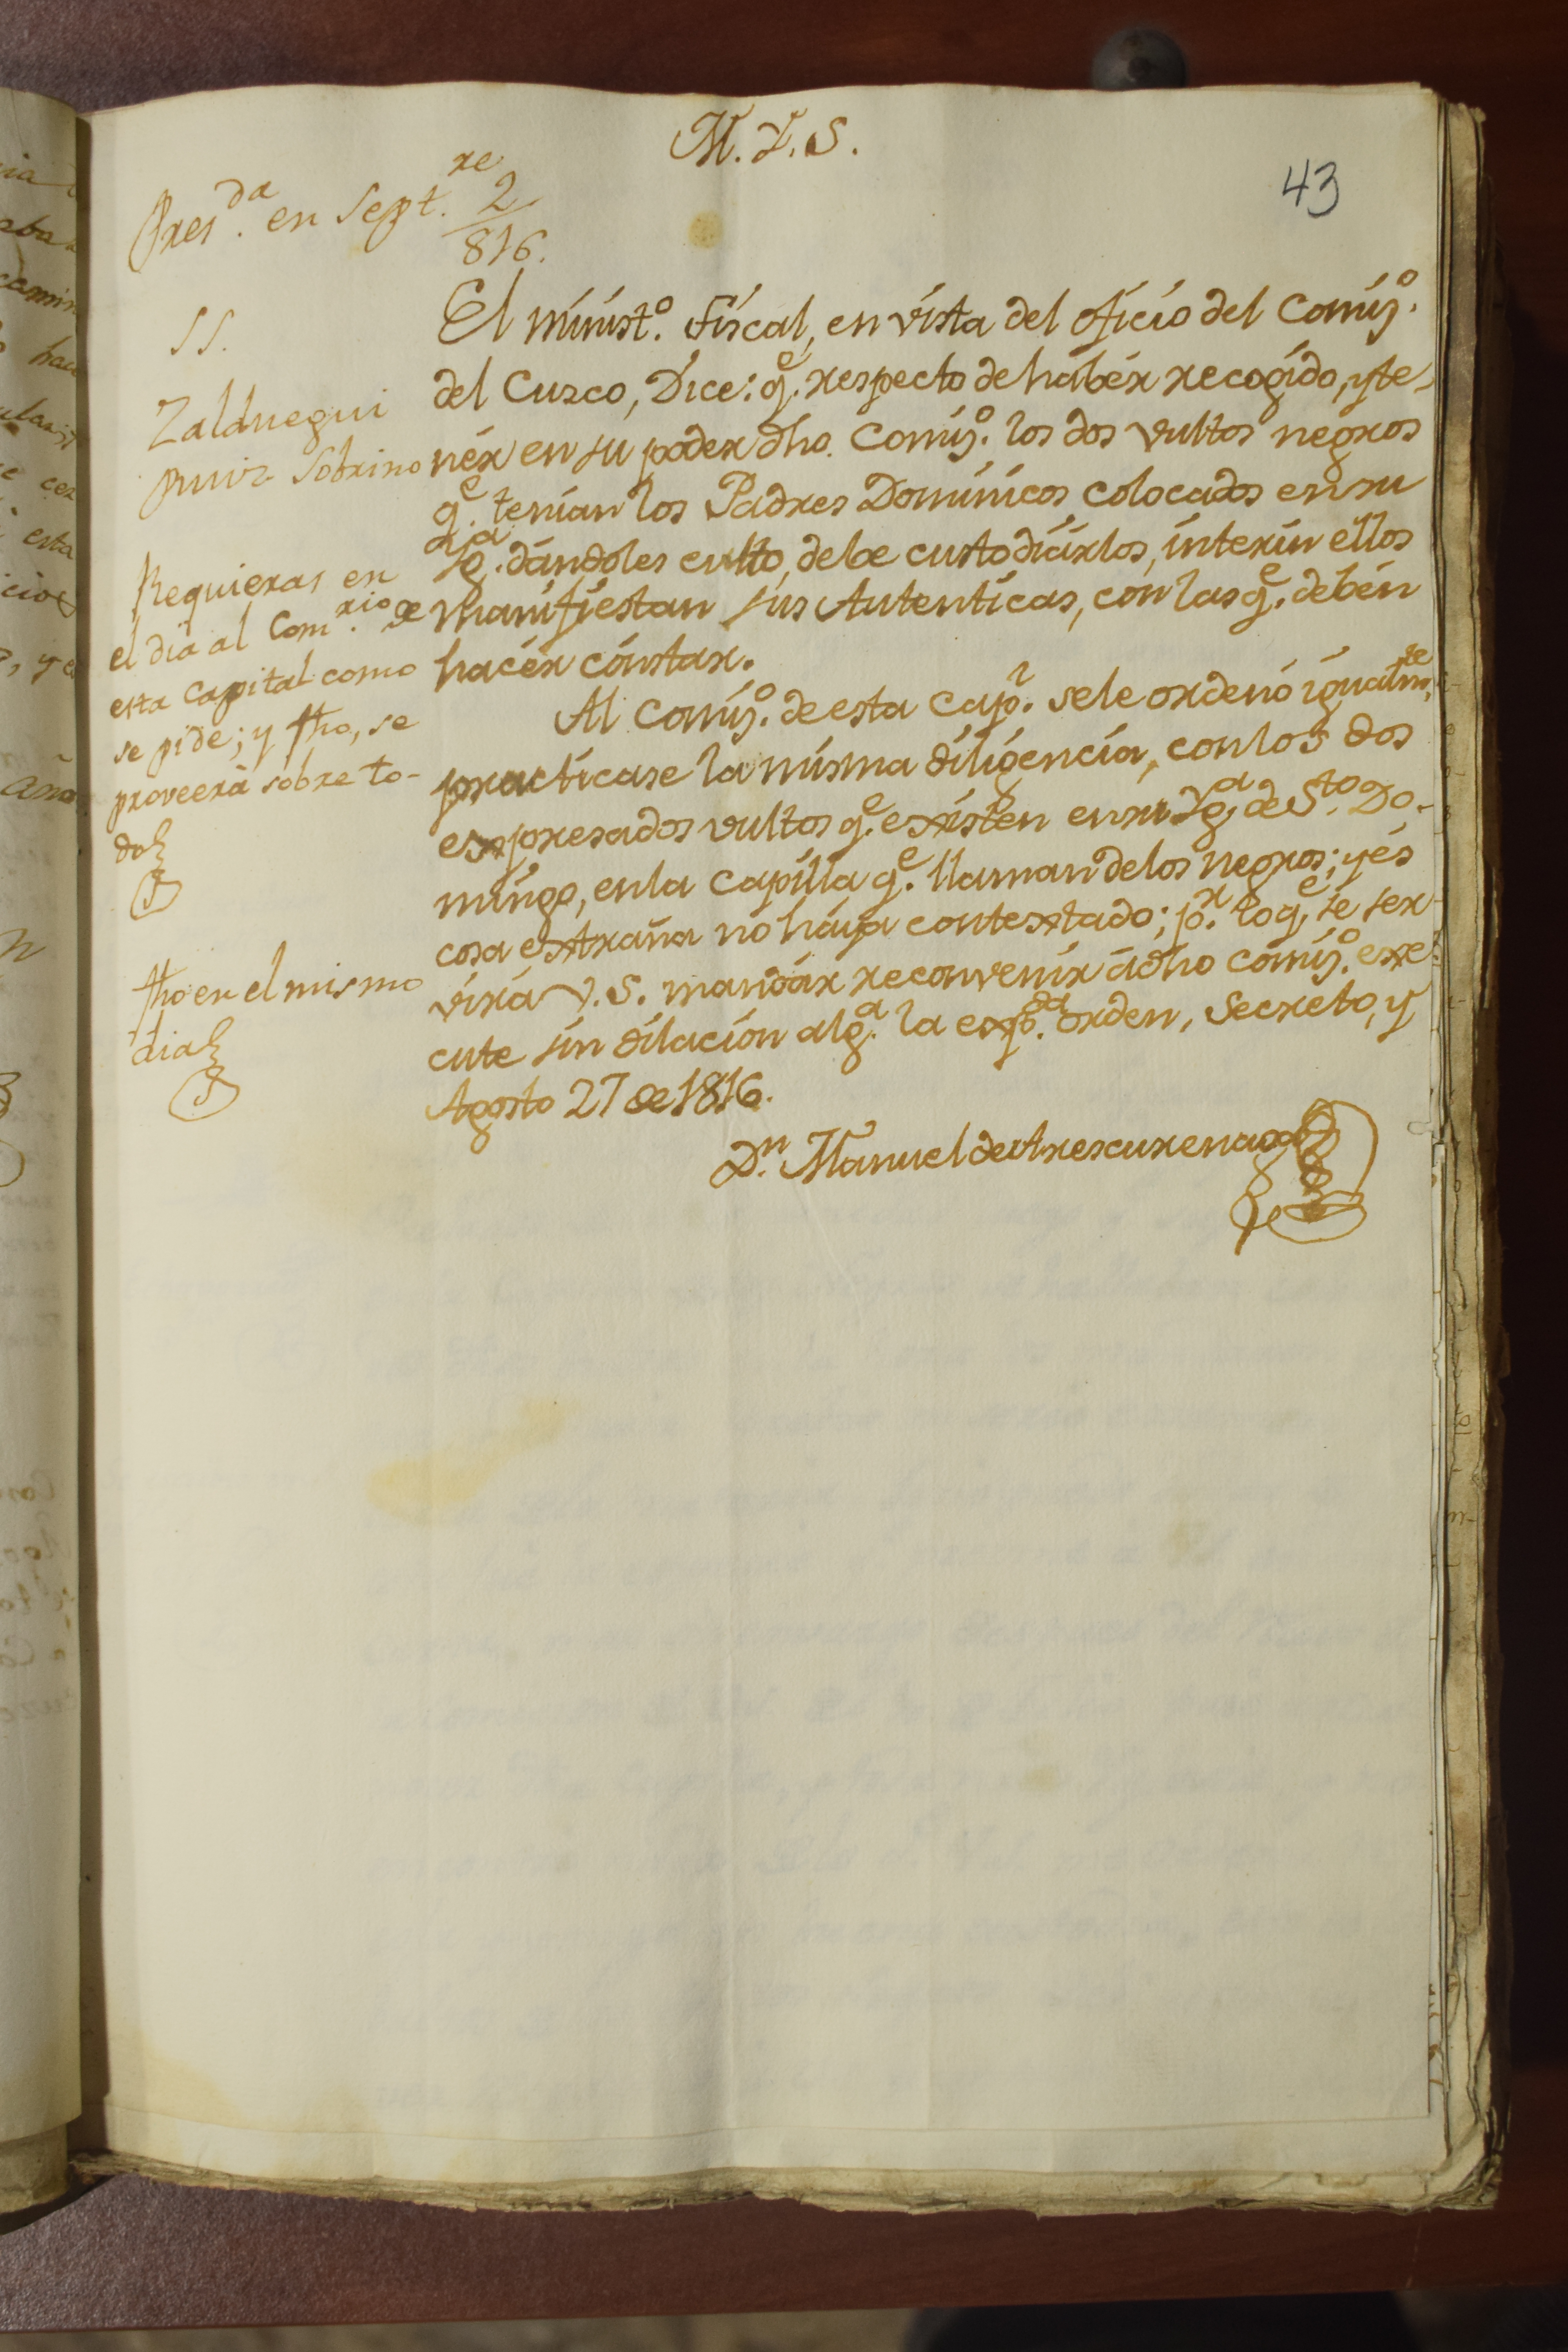 M. Y. S.
43
Pres.da en Sept.re 2
816.
SS.
Zalduegui
Ruiz Sobrino
Requieras en
el dia al Com.rio de
esta Capital como
se pide; y fho, se
proveerà sobre to-
do
fho en el mismo
dia
El minist.o Fiscal, en vista del oficio del Comis.o
del Cuzco, Dice: q.e respecto de habér recogido, y te-
nér en su poder dho. Comis.o los dos vultos negros
q.e tenian los Padres Dominicos colocados en su
Yg.a dándoles culto, debe custodiárlos, interin ellos
manifiestan sus Autenticas, con las q.e debén
hacér constar.
Al Comis.o de esta Cap.l se le ordenó igualm.te
practicase la misma diligencia, con los dos
expresados vultos q.e existen en su Yg.a de S.to Do-
mingo, en la Capilla q.e llaman de los negros; y és
cosa extraña no háya contextado; p.r lo q.e se ser-
virá V. S. mandár reconvenir á dho Comis.o exe-
cute sin dilacion alg.a la exp.da orden, Secreto, y
Agosto 27 de 1816.
D.n Manuel de Arescurenaga